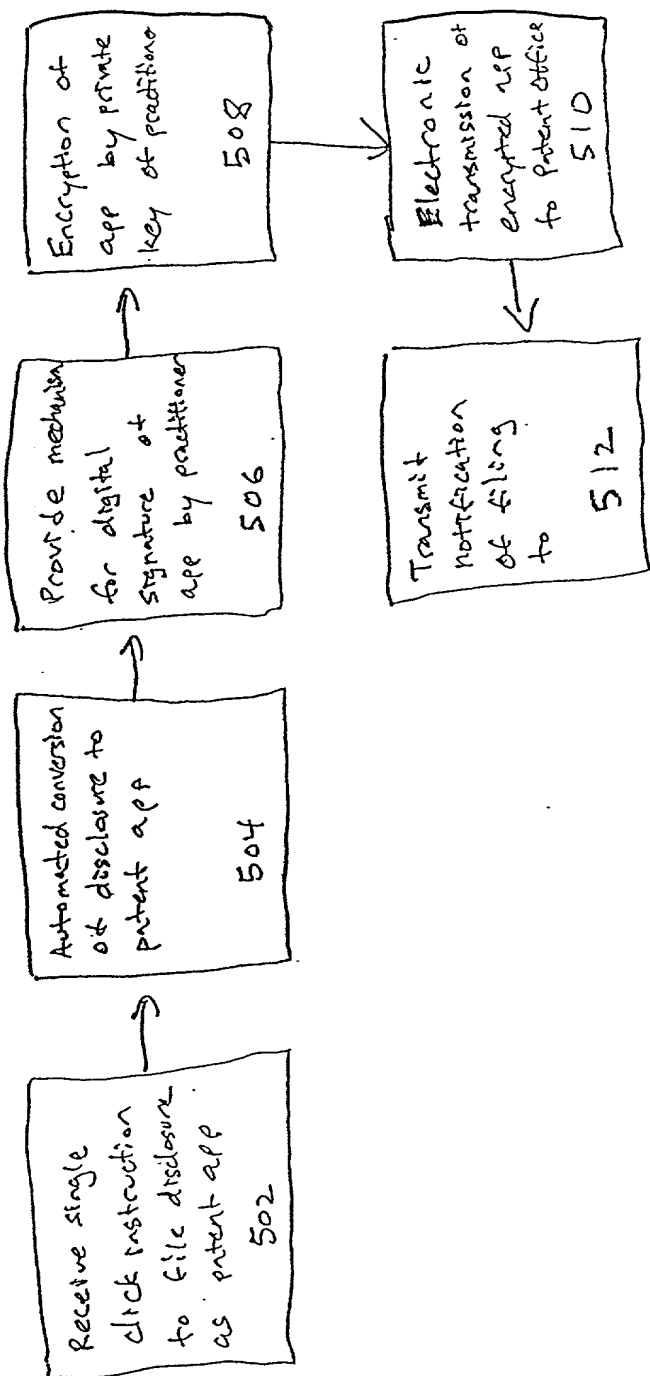 Receive single
click instruction
to file disclosure
as patent app
502
Automated conversion
of disclosure to
patent app
504
Provide mechanism
for digital
signature of
app by practitioner
506
Encryption of
app by private
key of practitione
508
Electronic
transmission of
encrypted app
to Patent Office
510
Transmit
notification
of filing
to
512